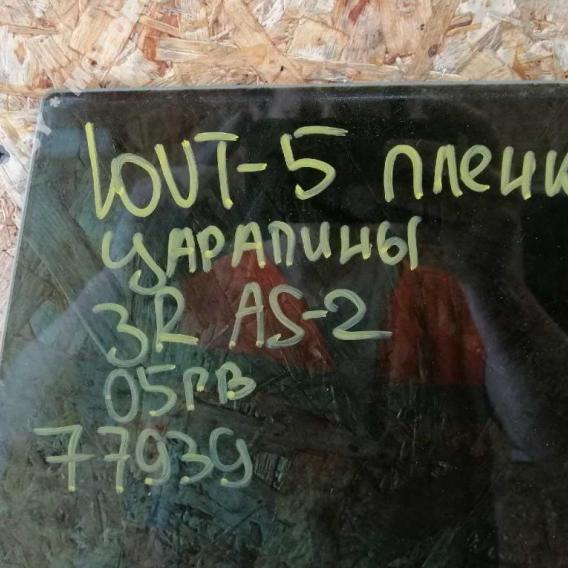 LOUT-5 пленк
царапины
3R AS-2
05гв
77939